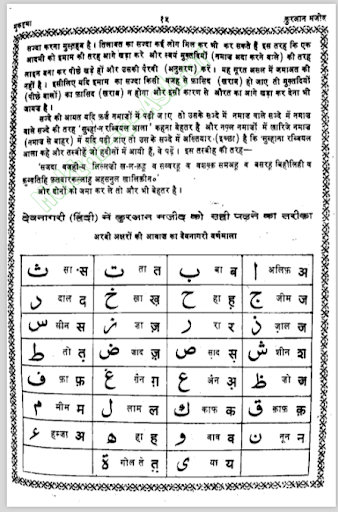 मुक़द्दमा १५ क़ुरआन मजीद
सज्दा करना मुस्तहब है। तिलावत का सज्दा कई लोग मिल कर भी कर सकते हैं इस तरह कि एक
आदमी को इमाम की तरह आगे खड़ा करें और स्वयं मुक़्तदियों (नमाज़ अदा करने वाले) की तरह
लाइन बना कर पीछे खड़े हों और उसकी पैरवी (अनुसरण) करें। यह सूरत असल में जमाअत की
नहीं है। इसीलिए यदि इमाम का सज्दा किसी वजह से फ़ासिद (ख़राब) हो जाए तो मुक़्तदियों
(पीछे वालों) का फ़ासिद (ख़राब) न होगा और इसी कारण से औरत का आगे खड़ा कर देना भी
जायज़ है।
सज्दे की आयत यदि फ़र्ज़ नमाज़ों में पढ़ी जाए तो उसके सज्दे में नमाज़ के सज्दे में नमाज़
वाले सज्दे की तरह 'सुब्हा-न रब्बियल आला' कहना बेहतर है और नफ़्ल नमाज़ों में ख़ारिजे नमाज़
(नमाज़ से बाहर) में यदि पढ़ी जाए तो उसके सज्दे में अख़्तियार (इच्छा) है कि 'सुब्हा-न रब्बियल
आला कहें और तस्बीहें जो हदीसों में आयी हैं, वे पढ़ें। इस तरबीह की तरह—
सज्दा वजही-य लिल्लज़ी ख़-ल-क़हू व सव्वरहू व शक़्क़ समअहू व बसरहू बिहौलिही व
क़ुव्वतिहि फ़तबारकल्लाहु अहसनुल ख़ालिक़ीन०'
और दोनों को जमा कर ले तो और भी बेहतर है।
देवनागरी (हिंदी) में क़ुरआन मजीद को सही पढ़ने का तरीक़ा
अरबी अक्षरों की आवाज़ का देवनागरी वर्णमाला
ث सा स ت ता त ب बा ब ا अलिफ़ अ
د दाल द خ ख़ा ख़ ح हा ह ج जीम ज
س सीन स ز ज़ा ज़ ر रा र ذ ज़ाल ज़
ط तो त ض ज़ाद ज़ ص साद स ش शीन श
ف फ़ा फ़ غ ग़ैन ग़ ع अैन अ ظ ज़ो ज़
م मीम म ل लाम ल ك काफ़ क ق क़ाफ़ क़
ء हम्ज़ा अ ه हा ह و वाव व ن नून न
ة गोल ते त ى या य